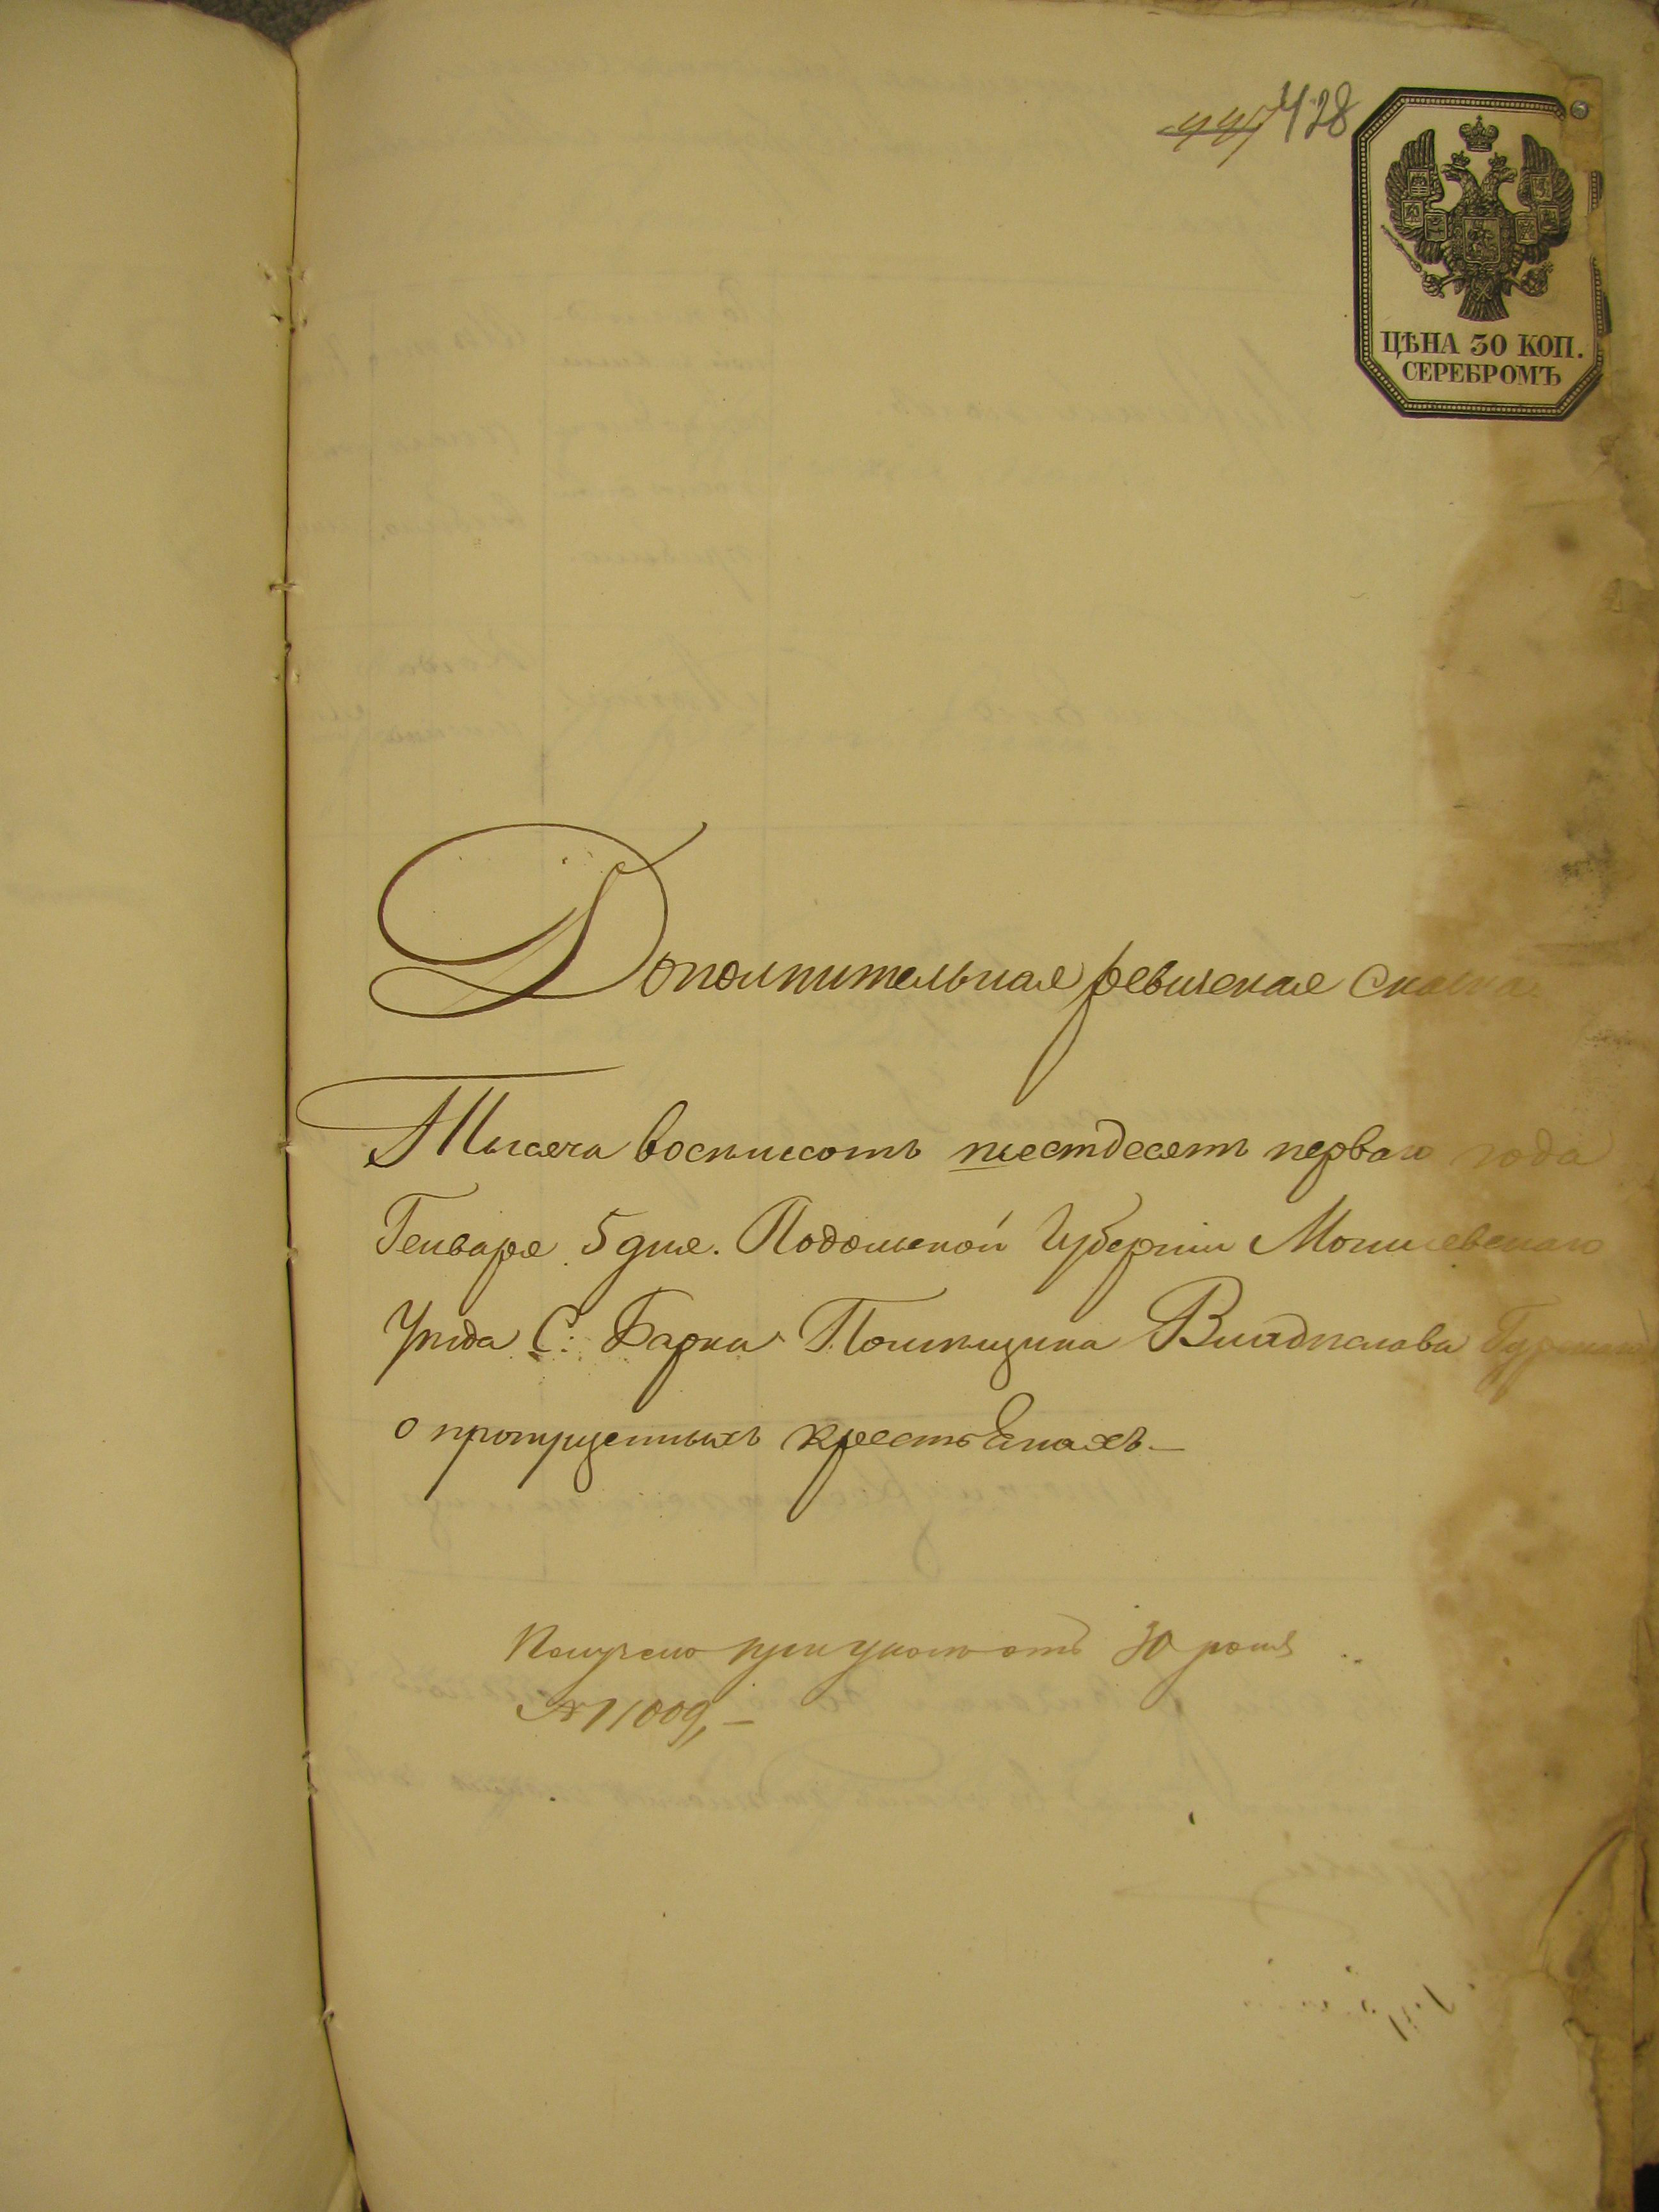 428
ЦѢНА 30 КОП.
СЕРЕБРОМЪ
Дополнительная ревизская сказка
Тысяча восъмьсотъ шестдесятъ перваго года
Генваря 5 дня. Подольской Губерніи Могилевскаго
Уѣзда С: Барки Помѣщика Владислава
о пропущенныхъ крестьянахъ.—
Получено при указѣ отъ 30
№ 11009,—